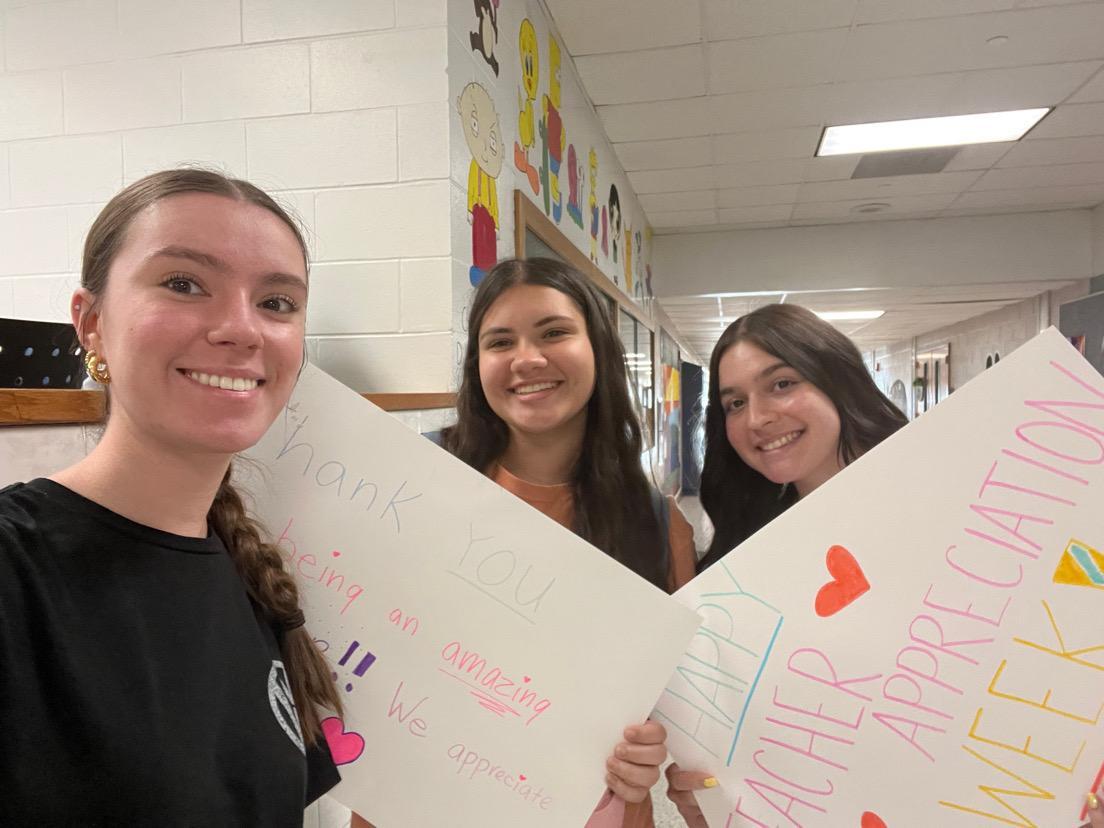 Thank
YOU
being an amazing
!!!
We appreciate
HAPPY
TEACHER
APPRECIATION
WEEK